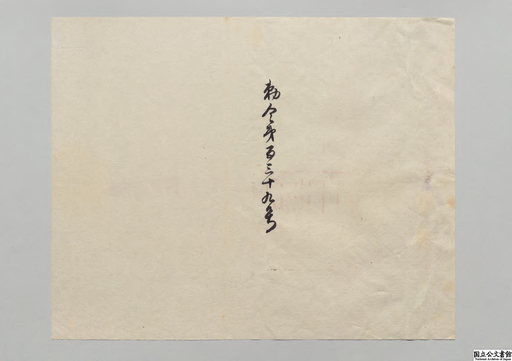 勅令第百三十九号
国立公文書館
National Archives of Japan